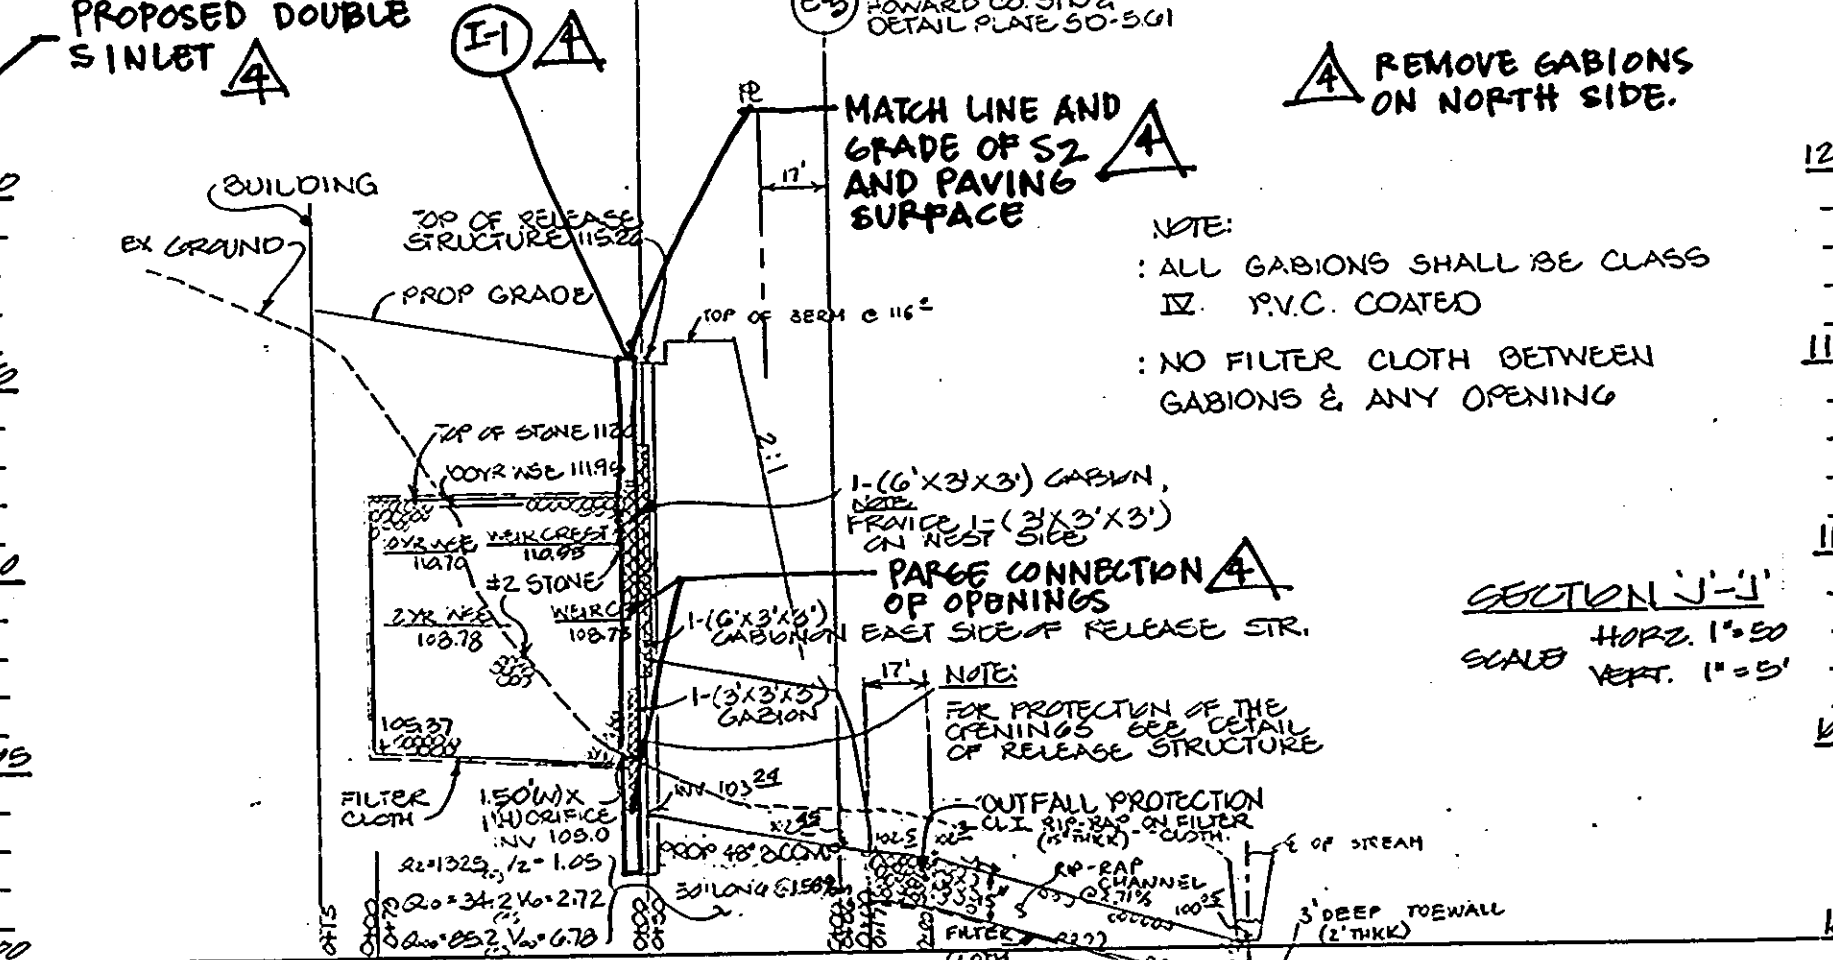 PROPOSED DOUBLE
S INLET 4
I-1 4
HOWARD CO. STD.
DETAIL PLATE SD-5.61
4 REMOVE GABIONS
ON NORTH SIDE.
MATCH LINE AND
GRADE OF S2
AND PAVING
SURFACE
4
17'
BUILDING
EX GROUND
TOP OF RELEASE
STRUCTURE 115.20
PROP GRADE
TOP OF BERM @ 116
NOTE:
: ALL GABIONS SHALL BE CLASS
IV. P.V.C. COATED
: NO FILTER CLOTH BETWEEN
GABIONS & ANY OPENING
2:1
TOP OF STONE 112.0
100YR WSE 111.95
10YR WSE
110.70
WEIR CREST
110.95
#2 STONE
2YR WSE
103.78
WEIR C
108.75
1-(6'X3'X3') GABION,
NOTE
PROVIDE 1-(3'X3'X3')
ON WEST SIDE
PARGE CONNECTION 4
OF OPENINGS
1-(6'X3'X3')
GABION ON EAST SIDE OF RELEASE STR.
1-(3'X3'X3')
GABION
17'
NOTE:
FOR PROTECTION OF THE
OPENINGS SEE DETAIL
OF RELEASE STRUCTURE
SECTION 'J'-'J'
SCALE HORZ. 1"=50
VERT. 1"=5'
105.37
FILTER
CLOTH
1.50'(W)X
1'(H) ORIFICE
INV 103.0
INV 103.24
OUTFALL PROTECTION
CL I RIP-RAP ON FILTER
(15" THKK) CLOTH.
102.5
PROP 48"
RIP-RAP
CHANNEL
@ 2.71%
100.05
℄ OF STREAM
3' DEEP TOEWALL
(2' THKK)
Q10=34.2 V10=2.72
Q100=85.2 V100=6.78
FILTER
CLOTH
0+75
0+00